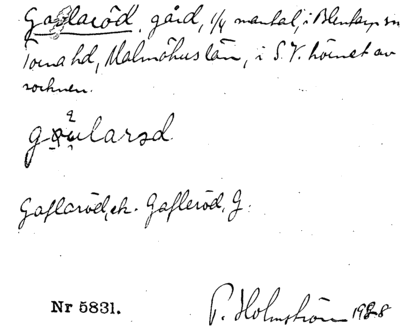 Gaflaröd, gård, 1/4 mantal, i Blentarp sn
Torna hd, Malmöhus län, i S.V. hörnet av
socknen.
Gaflaröd, ek. Gafleröd, G.
Nr 5831.
P. Holmström 1928